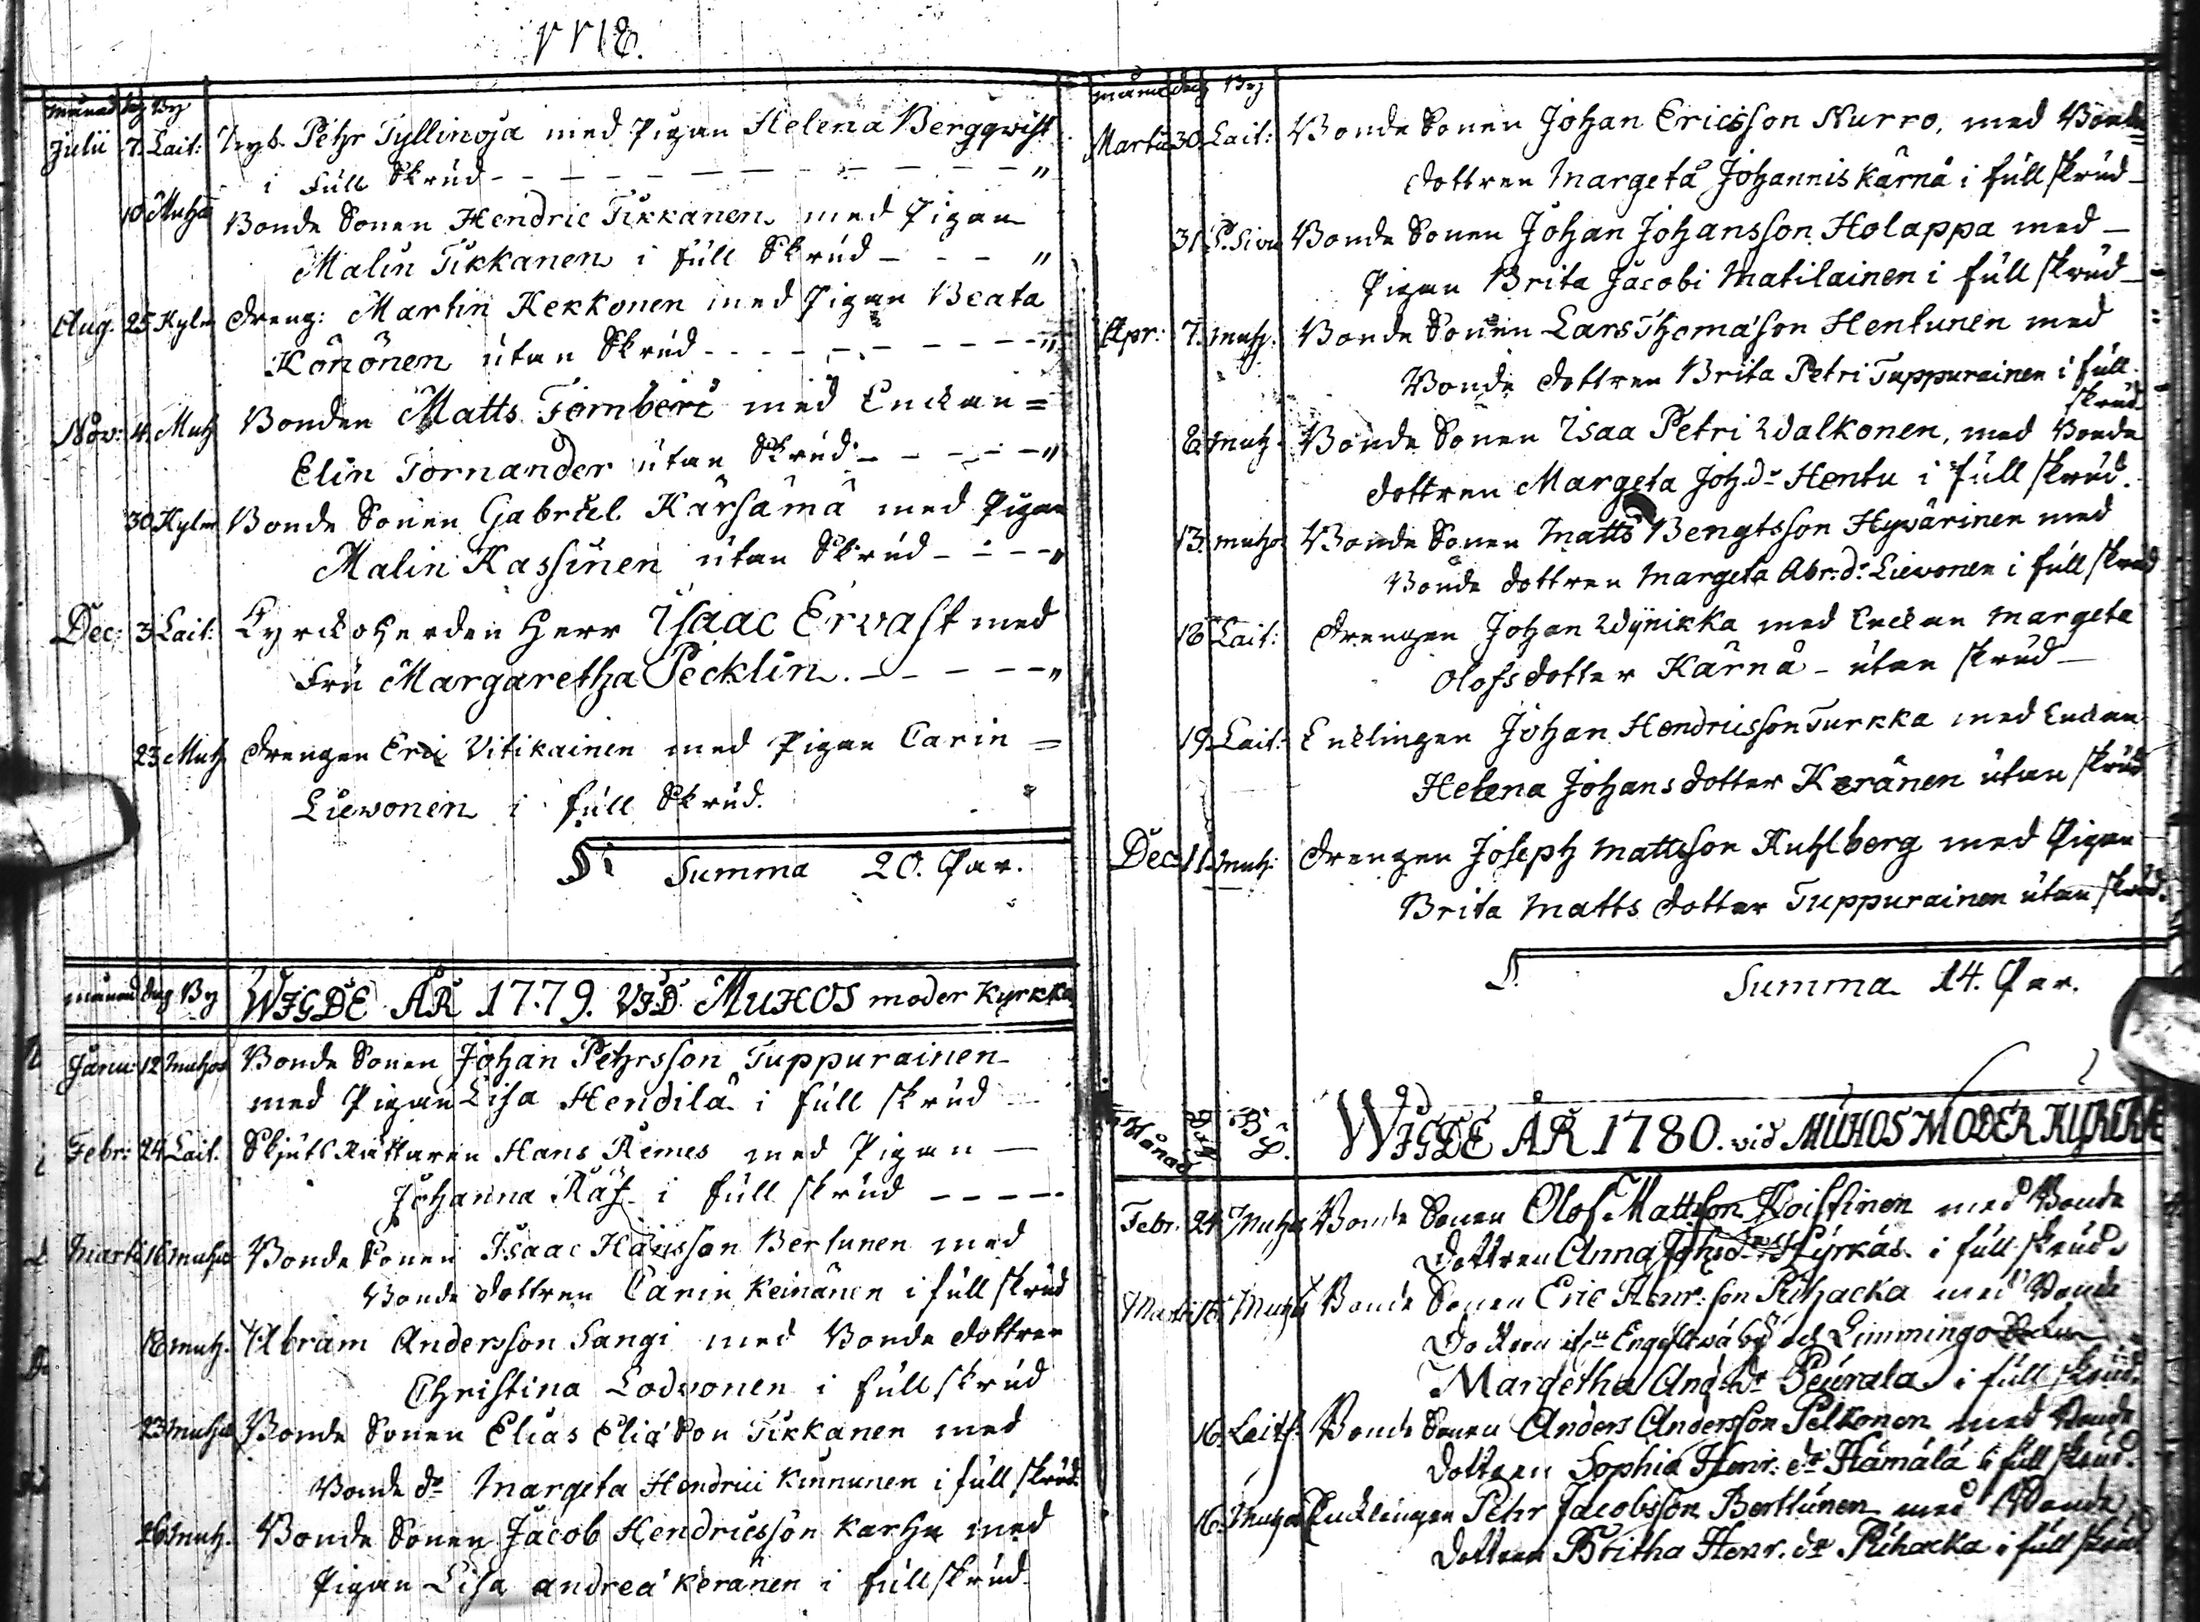 1778.
månad dag By
Julii 7. Lait: Inh. Pehr Tyllinoja med Pigan Helena Bergqvist
i Full Skrud - - - - - - - - - - - "
10 Muhos Bonde Sonen Hendric Tikkanen med Pigan
Malin Tikkanen i full Skrud - - - "
Aug. 25 Kylm Dreng: Martin Kekkonen med Pigan Beata
Könönen utan Skrud - - - - - - - - "
Nov: 4. Muh Bonden Matts Tornberi med Enckan =
Elin Tornander utan Skrud - - - - - "
30. Kylm Bonde Sonen Gabriel Kärsämä med Pigan
Malin Kassinen utan Skrud - - - - "
Dec: 3. Lait: Kyrckoherden Herr Isaac Ervast med
Fru Margaretha Pecklin. - - - - - "
23 Muh Drengen Eric Vitikainen med Pigan Carin =
Lievonen i full Skrud. "
Summa 20. Par.
månad dag By WIGDE ÅR 1779. VID MUHOS moder Kyrkka
Janu: 12 Muhos Bonde Sonen Johan Pehrsson Tuppurainen
med Pigan Lisa Hendilä i full skrud
Febr: 24 Lait. Skjuts Rättaren Hans Remes med Pigan -
Johanna Räf i full skrud - - - - -
Marti 16 muhos Bonde Sonen Isaac Hansson Bertunen med
Bonde dottren Carin Keinänen i full skrud
18 muh. Abram Andersson Sangi med Bonde dottren
Christina Lodvonen i full skrud
23 muhos Bonde Sonen Elias Elia'Son Tikkanen med
Bonde dr Margeta Hendrici Kinnunen i full skrud
26 muh. Bonde Sonen Jacob Hendricsson Karhu med
Pigan Lisa andreä Keränen i full skrud
månad dag By
Martii 30. Lait: Bonde Sonen Johan Ericsson Nurro, med Bonde=
dottren Margeta Johannis Kärnä i full skrud -
31 Bonde Sonen Johan Johansson Holappa med -
Pigan Brita Jacobi Matilainen i full skrud -
Apr: 7. muh. Bonde Sonen Lars Thoma'son Hentunen med
Bonde dottren Brita Petri Tuppurainen i full
skrud
8. muh Bonde Sonen Isaa Petri Walkonen, med Bonde
dottren Margeta Joh:dr Hentu i full skrud.
13. muhos Bonde Sonen Matts Bengtsson Hyvärinen med
Bonde dottren Margeta Abr:dr Lievonen i full skrud
18 Lait: Drengen Johan Wynikka med Enckan Margeta
Olofsdotter Kärnä - utan skrud -
19. Lait: Encklingen Johan Hendricsson Turkka med Enckan
Helena Johansdotter Keränen utan skrud
Dec: 11. muh: Drengen Joseph Mattsson Kuhlberg med Pigan
Brita Matts dotter Tuppurainen utan skrud.
Summa 14. Par.
Månad Dag By. WIGDE ÅR 1780. vid MUHOS MODER KYRCKA
Febr. 24. Muhos Bonde Sonen Olof Mattsson Koistinen med Bonde
dottren Anna Hyrkäs i full skrud
Martii 16. Muhos Bonde Sonen Eric Henr:son Pihacka med Bonde
Dottren by och Limmingo
Margetha And:dr Peurala i full skrud.
16. Laits: Bonde Sonen Anders Andersson Pelkonen med Bonde
dottren Sophia Henr: dr Hämälä i full skrud.
16. Muhos Encklingen Pehr Jacobsson Berttunen med Bonde
dottren Britha Henr. dr Pihacka i full skrud